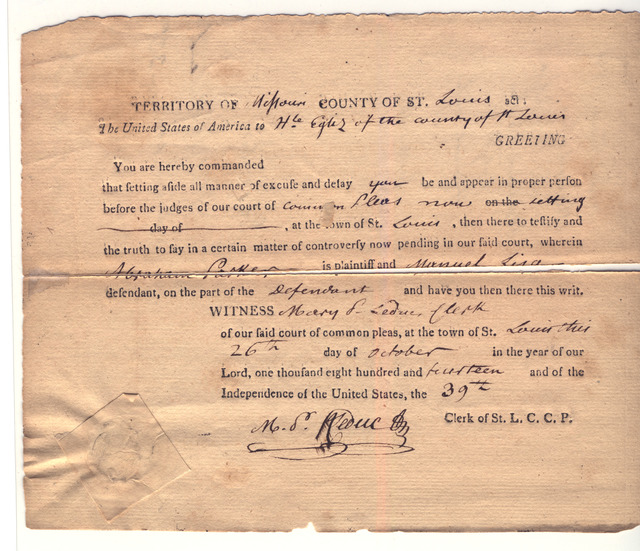 TERRITORY OF Missouri COUNTY OF ST. Louis sct:
The United States of America to Hte Egliz of the county of St Louis
GREETING
You are hereby commanded
that setting aside all manner of excuse and delay you be and appear in proper person
before the judges of our court of common Pleas now on the setting
day of , at the town of St. Louis , then there to testify and
the truth to say in a certain matter of controversy now pending in our said court, wherein
Abraham Parker is plaintiff and Manuel Lisa
defendant, on the part of the Defendant and have you then there this writ.
WITNESS Mary P. Leduc, Clerk
of our said court of common pleas, at the town of St. Louis this
26th day of October in the year of our
Lord, one thousand eight hundred and fourteen and of the
Independence of the United States, the 39th
M. P. Leduc Clerk of St. L. C. C. P.